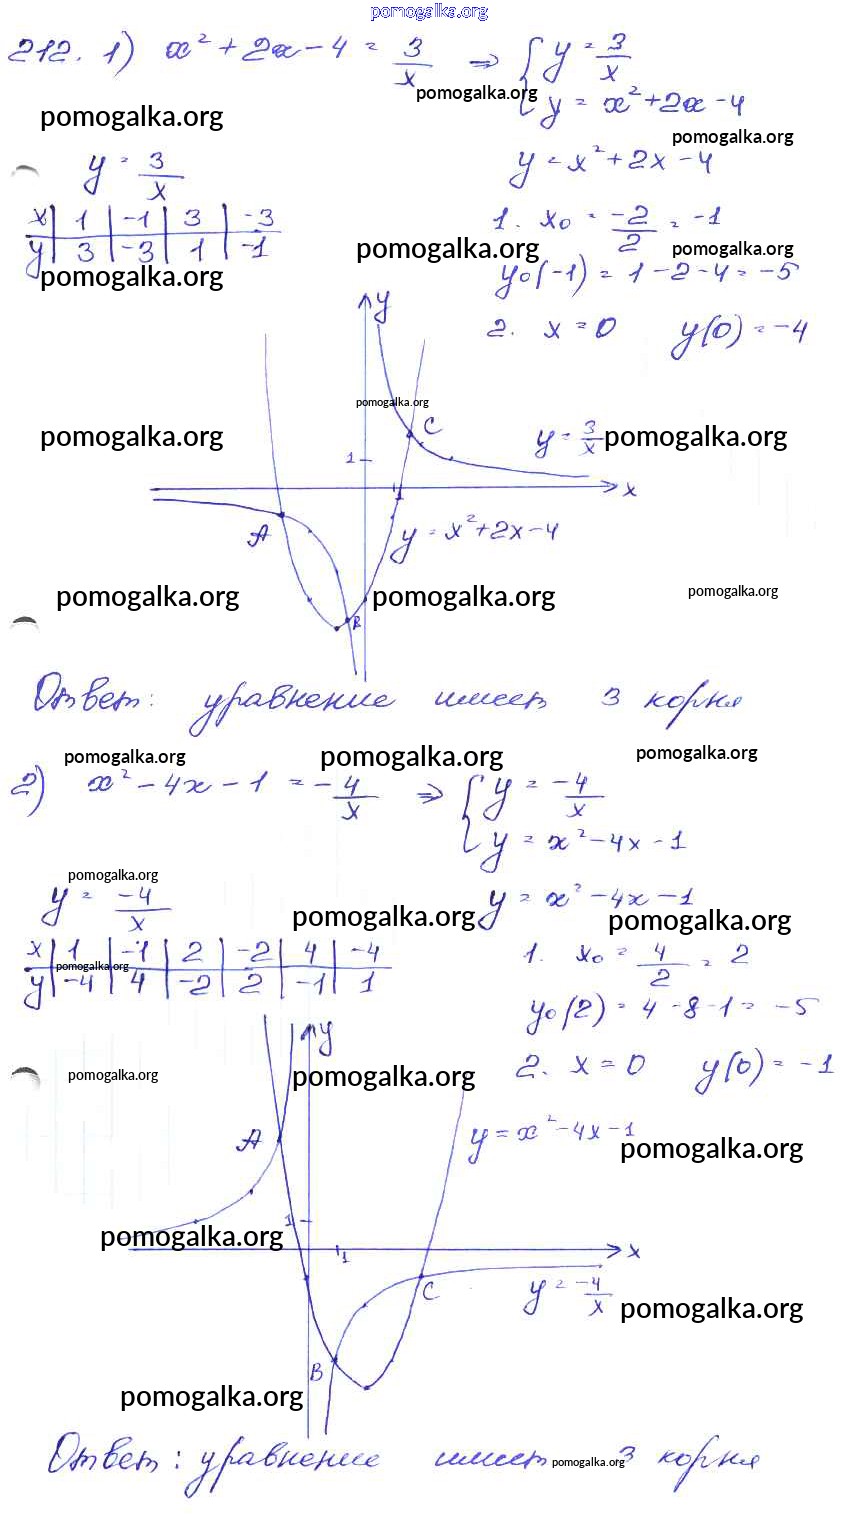 pomogalka.org
212. 1) x² + 2x - 4 = 3/x ⇒ { y = 3/x
y = x² + 2x - 4
pomogalka.org
pomogalka.org
pomogalka.org
y = 3/x
y = x² + 2x - 4
x | 1 | -1 | 3 | -3
y | 3 | -3 | 1 | -1
1. x₀ = -2/2 = -1
pomogalka.org
pomogalka.org
pomogalka.org
y₀(-1) = 1 - 2 - 4 = -5
2. x = 0 y(0) = -4
y
pomogalka.org
C
pomogalka.org
y = 3/x
pomogalka.org
1
1
x
A
y = x² + 2x - 4
pomogalka.org
pomogalka.org
pomogalka.org
B
Ответ: уравнение имеет 3 корня
pomogalka.org
pomogalka.org
pomogalka.org
2) x² - 4x - 1 = -4/x ⇒ { y = -4/x
y = x² - 4x - 1
pomogalka.org
y = -4/x
y = x² - 4x - 1
pomogalka.org
pomogalka.org
x | 1 | -1 | 2 | -2 | 4 | -4
y | -4 | 4 | -2 | 2 | -1 | 1
pomogalka.org
1. x₀ = 4/2 = 2
y₀(2) = 4 - 8 - 1 = -5
y
2. x = 0 y(0) = -1
pomogalka.org
pomogalka.org
A
y = x² - 4x - 1
pomogalka.org
1
pomogalka.org
1
x
C
y = -4/x
pomogalka.org
B
pomogalka.org
Ответ: уравнение имеет 3 корня
pomogalka.org